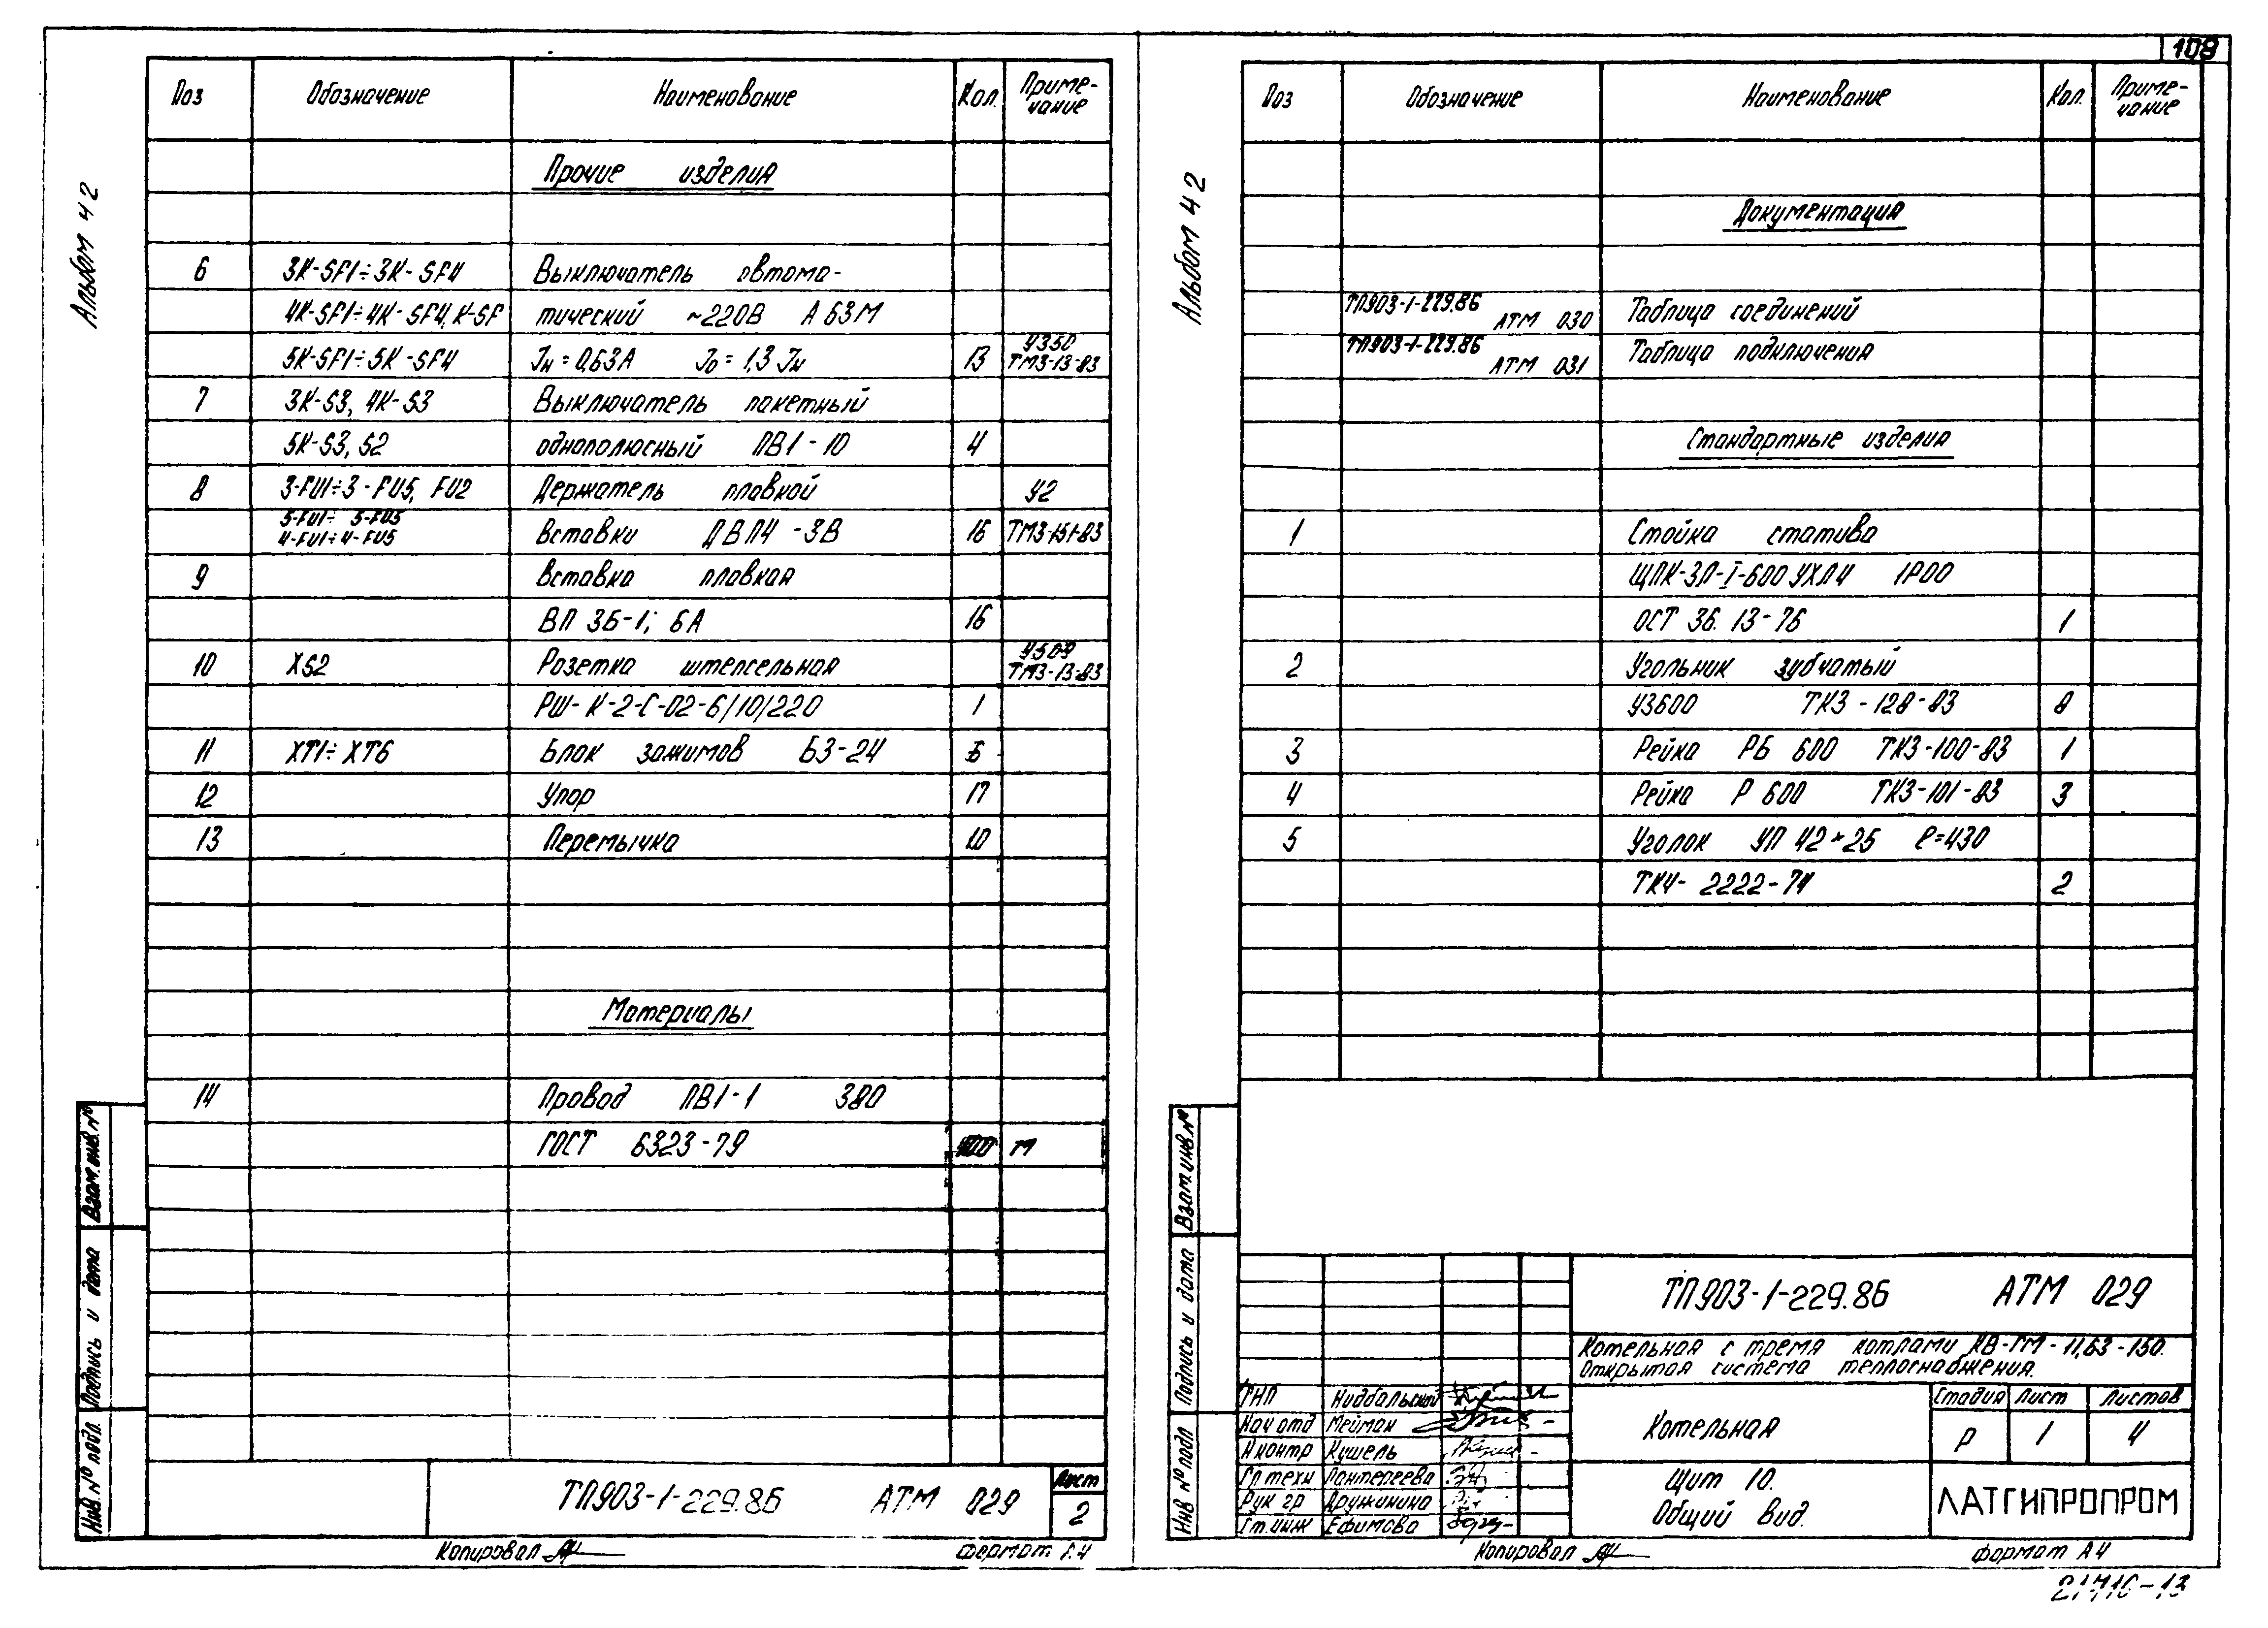 108
Альбом 42
Поз Обозначение Наименование Кол. Приме-
чание
Прочие изделия
6 3К-SF1÷3К-SF4 Выключатель автома-
4К-SF1÷4К-SF4, К-SF тический ~220В А63М
5К-SF1÷5К-SF4 Jн=0,63А Jо=1,3 Jн 13 У350
ТМ3-13-83
7 3К-S3, 4К-S3 Выключатель пакетный
5К-S3, S2 однополюсный ПВ1-10 4
8 3-FU1÷3-FU5, FU2 Держатель плавкой У2
5-FU1÷5-FU5
4-FU1÷4-FU5 вставки ДВП4-3В 16 ТМ3-151-83
9 Вставка плавкая
ВП 3Б-1; 6А 16
10 XS2 Розетка штепсельная У509
ТМ3-13-83
РШ-К-2-С-02-6/10/220 1
11 ХТ1÷ХТ6 Блок зажимов БЗ-24 6
12 Упор 17
13 Перемычка 10
Материалы
14 Провод ПВ1-1 380
ГОСТ 6323-79 м
Взам. инв. №
Подпись и дата
Инв. № подл.
ТП903-1-229.86 АТМ 029
Лист
2
Копировал
Формат А4
Альбом 42
Поз Обозначение Наименование Кол. Приме-
чание
Документация
ТП903-1-229.86
АТМ 030 Таблица соединений
ТП903-1-229.86
АТМ 031 Таблица подключения
Стандартные изделия
1 Стойка статива
ЩПК-ЗП-I-600 УХЛ4 IP00
ОСТ 36.13-76 1
2 Угольник зубчатый
УЗ600 ТК3-128-83 8
3 Рейка РБ 600 ТК3-100-83 1
4 Рейка Р 600 ТК3-101-83 3
5 Уголок УП 42×25 ℓ=430
ТК4-2222-74 2
Взам. инв. №
Подпись и дата
Инв № подл
ТП903-1-229.86 АТМ 029
Котельная с тремя котлами КВ-ГМ-11,63-150.
Открытая система теплоснабжения.
ГИП
Нач отд Мейман
Н контр Кушель
Гл техн Пантелеева
Рук гр Дружинина
Ст. инж Ефимова
Котельная
Стадия Лист Листов
Р 1 4
Щит 10.
Общий вид.
ЛАТГИПРОПРОМ
Копировал
Формат А4